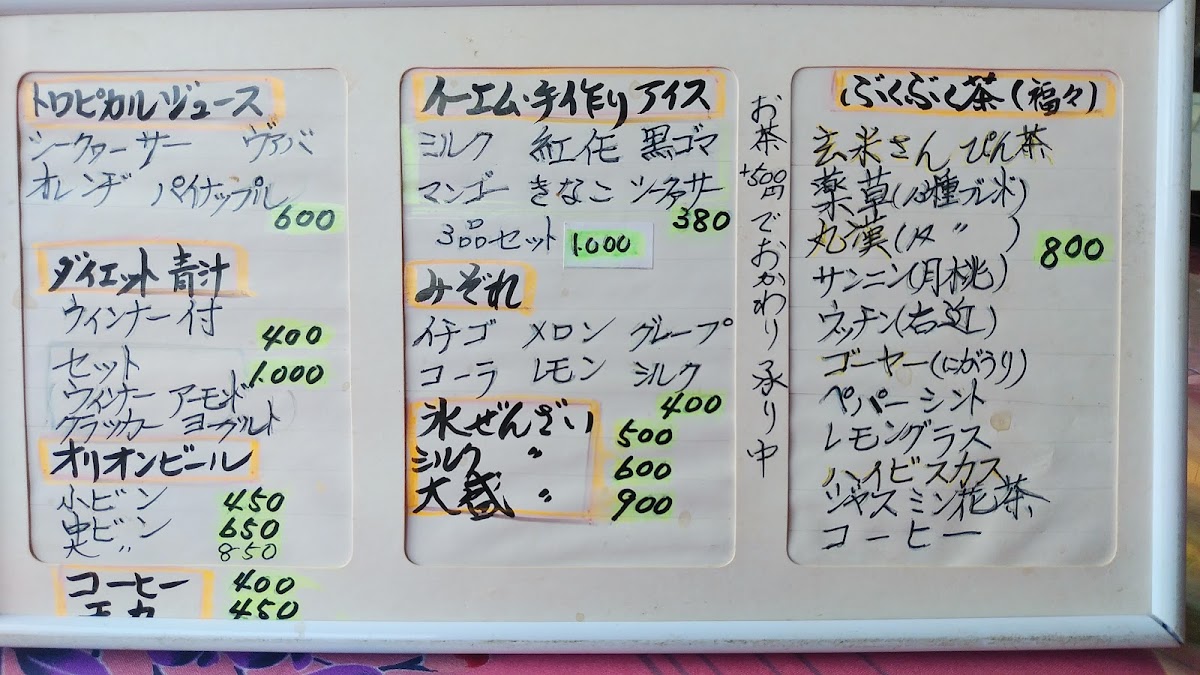 トロピカルジュース
シークヮーサー グァバ
オレンヂ パイナップル
600
ダイエット青汁
ウィンナー付
400
セット
1.000
(ウィンナー アーモンド)
クラッカー ヨーグルト
オリオンビール
小ビン 450
中ビン 650
大〃 850
コーヒー 400
450
イーエム・手作りアイス
ミルク 紅芋 黒ゴマ
マンゴー きなこ シークァサー
380
3品セット 1.000
みぞれ
イチゴ メロン グレープ
コーラ レモン ミルク
400
氷ぜんざい 500
ミルク 〃 600
大盛 〃 900
お茶+500円でおかわり承り中
ぶくぶく茶(福々)
玄米さんぴん茶
薬草(八種ブレンド)
丸漢(12〃)
800
サンニン(月桃)
ウッチン(右近)
ゴーヤー(にがうり)
ペパーミント
レモングラス
ハイビスカス
ジャスミン花茶
コーヒー